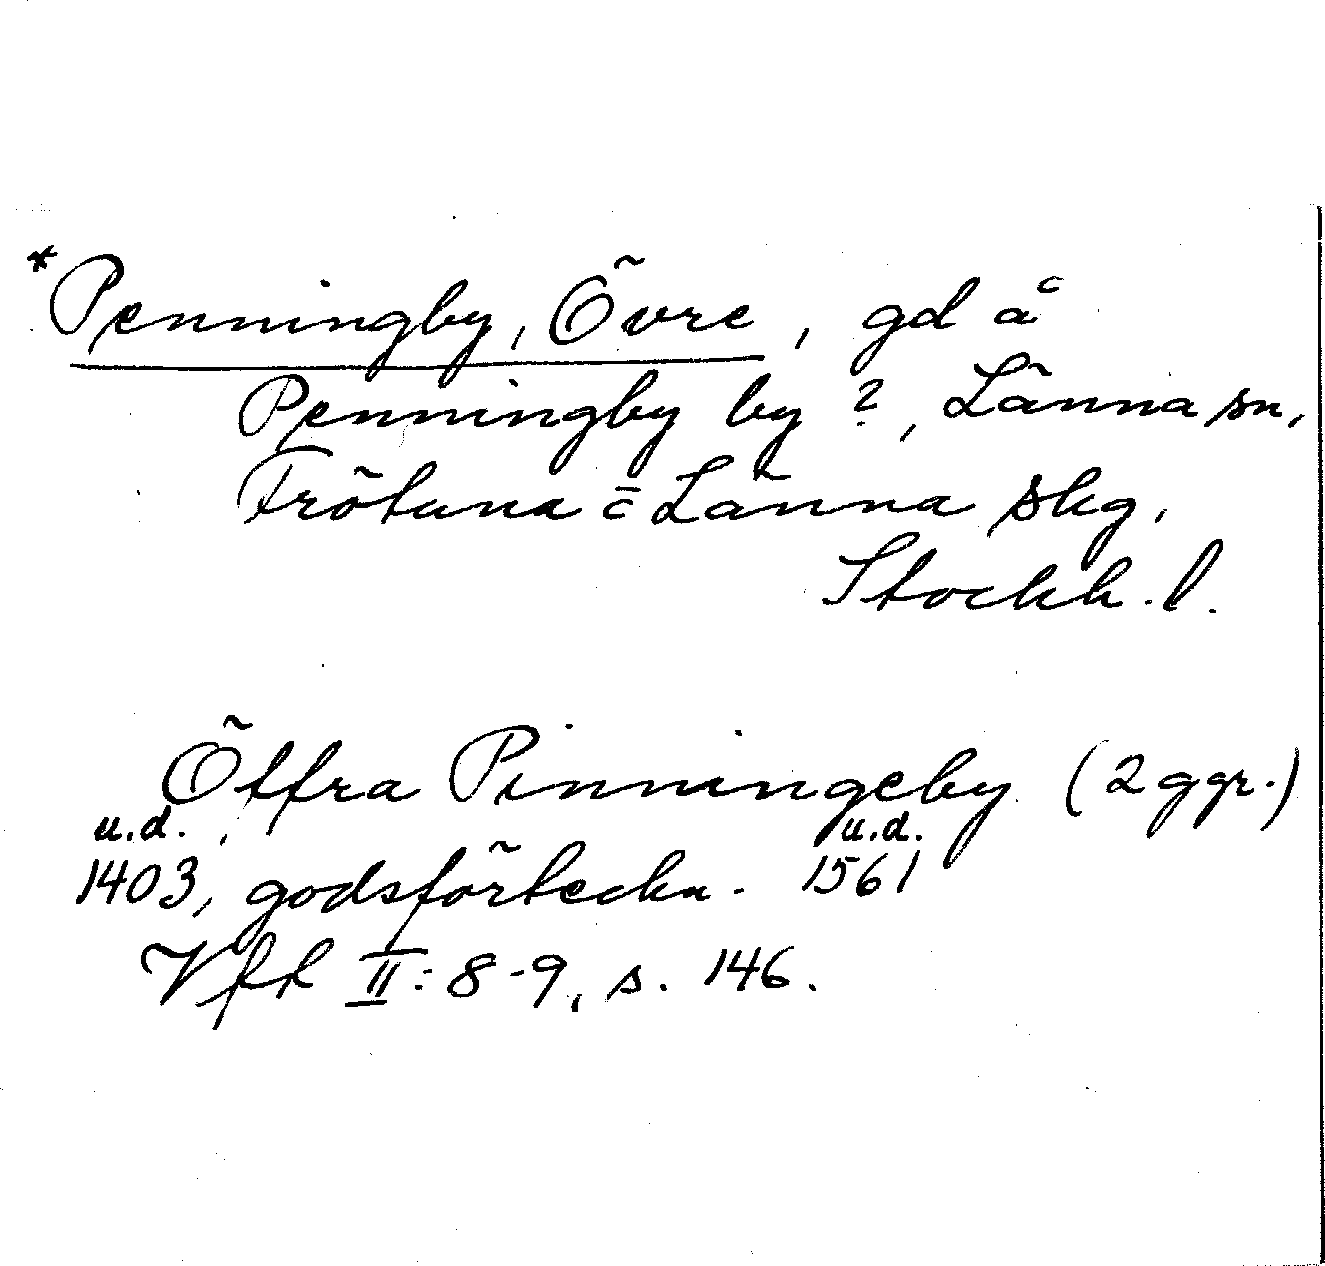 *Penningby, Övre, gd å
Penningby by ?, Länna sn,
Frötuna c̄ Länna skg,
Stockh. l.
Öffra Pinningeby (2 ggr.)
u.d. u.d.
1403, godsförteckn. 1561
Vfk II: 8-9, s. 146.